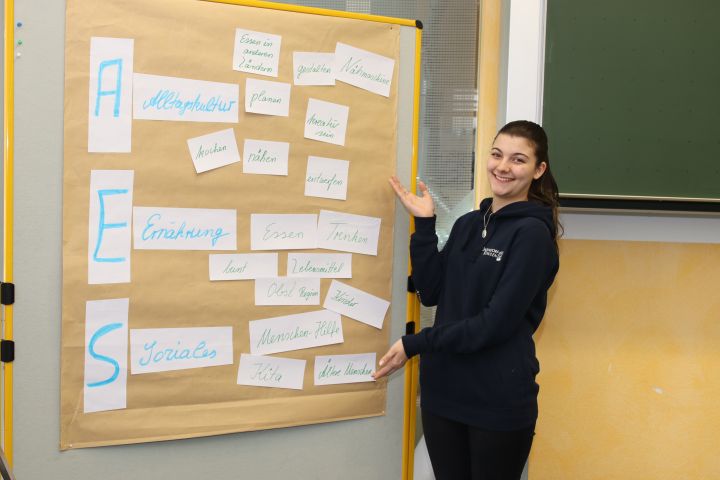 Essen in
anderen
Ländern
gestalten
Nähmaschine
A
Alltagskultur
planen
kreativ
sein
kochen
nähen
entwerfen
E
Ernährung
Essen
Trinken
bunt
Lebensmittel
Obst Region
Kinder
S
Soziales
Menschen-Hilfe
Kita
Ältere Menschen